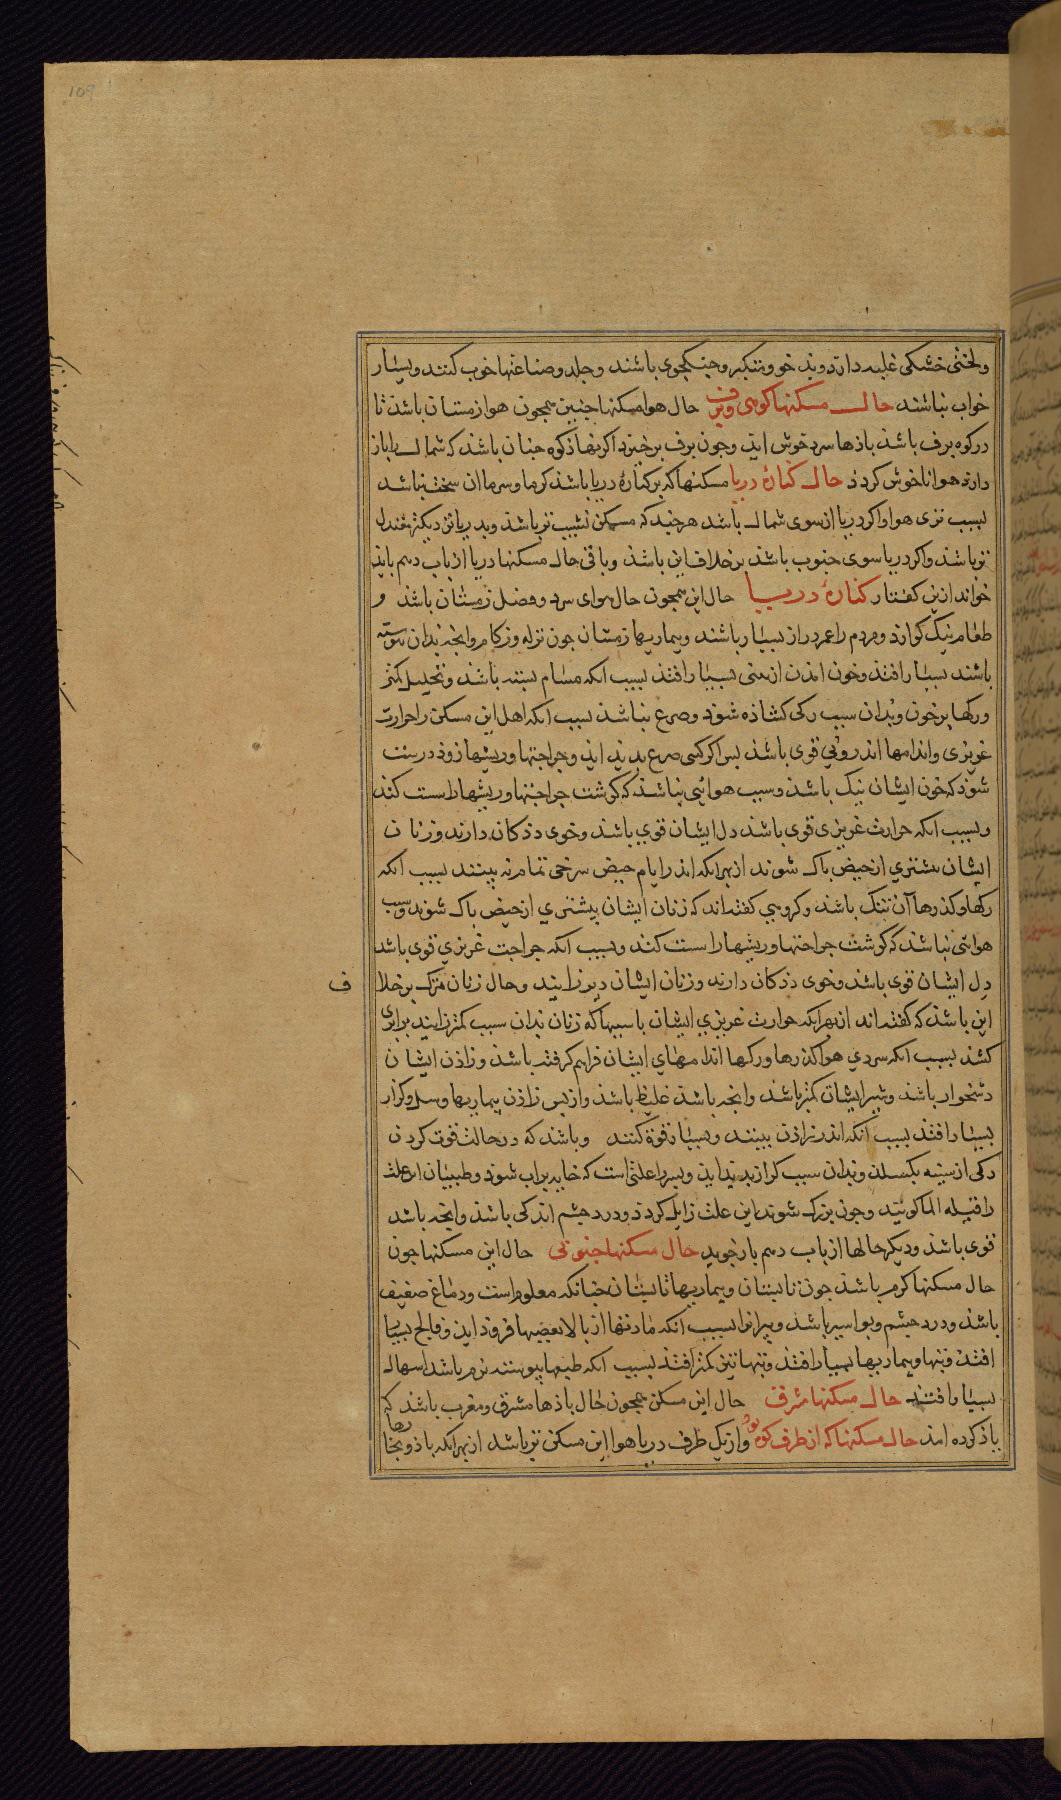 109
ولختی خشکی غلبه دارد و بد خو و متکبر و جنکجوی باشند و جلد و صناعتها خوب کنند و بسیار
خواب نباشند حال مسکنها کوهی و برف حال هوا مسکنها چنین همچون هوا زمستان باشد تا
در کوه برف باشد باذها سرد خوش اید و چون برف برخیزد اکر نهاذ کوه چنان باشد که شمال را باز
دارد هوا ناخوش کردد حال کنارهٔ دریا مسکنها که بر کنارهٔ دریا باشد کرما و سرما ان سخت نباشد
بسبب تری هوا و اکر دریا از سوی شمال باشد هرچند که مسکن نشیب تر باشد و بدریا نزدیکتر معتدل
تر باشد و اکر دریا سوی جنوب باشد بر خلاف این باشد و باقی حال مسکنها دریا از باب دهم باید
خواند ازین کفتار کنارهٔ دریا حال این همچون حال هوای سرد و فصل زمستان باشد و
طعام نیک کوارد و مردم را عمر دراز بسیار باشند و بیماریها زمستان چون نزله و زکام و انچه بدان پیوسته
باشند بسیار افتد و خون امدن از بینی بسیار افتد بسبب انکه مسام بسته باشد و تحلیل کمتر
و رکها پر خون و بدان سبب رکی کشاذه شود و صرع نباشد بسبب انکه اهل این مسکن را حرارت
غریزی و اندامها اندرونی قوی باشد بس اکر کسی صرع بدید اید و جراحتها و ریشها زود درست
شود که خون ایشان نیک باشد و سبب هوائی نباشد که کوشت جراحتها و ریشها را سست کند
و بسبب انکه حرارت غریزی قوی باشد دل ایشان قوی باشد و خوی ددکان دارند و زنان
ایشان بیشتری از حیض باک شوند از بهر انکه اندر ایام حیض سرخی تمام نه بینند بسبب انکه
رکها و کذرها آن تنک باشد و کروهی کفته‌اند که زنان ایشان بیشتری از حیض باک شوند و سبب
هوائی نباشد که کوشت جراحتها و ریشها را سست کند و بسبب انکه جراحت غریزی قوی باشد
دل ایشان قوی باشد و خوی ددکان دارند و زنان ایشان دیر زایند و حال زنان ترک بر خلا
ف
این باشد که کفته‌اند از بهر انکه حرارت غریزی ایشان با سببها که زنان بدان سبب کمتر زایند برابری
کند بسبب انکه سردی هوا کذرها و رکها اندامهای ایشان فراهم کرفته باشد و زاذن ایشان
دشخوار باشد و شیر ایشان کمتر باشد و انچه باشد غلیظ باشد و از پس زاذن بیماریها و سل و کزاز
بسیار افتد بسبب آنکه اندر زاذن بینند و بسیار قوة کنند و باشد که در حالت قوت کردن
رکی از سینه بکسلد و بدان سبب کزاز بدید اید و پسر را علتی است که خایه پر اب شود و طبیبان این علت
را قیله الما کویند و چون بزرک شوند این علت زایل کردد و درد چشم اندکی باشد و انچه باشد
قوی باشد و دیکر حالها از باب دهم باز جوید حال مسکنها جنوبی حال این مسکنها چون
حال مسکنها کرم باشد چون تابستان و بیماریها تابستان چنانکه معلوم است و دماغ ضعیف
باشد و درد چشم و بواسیر باشد و پیرانرا بسبب انکه مادتها از بالا بعضیها فروذ اید و فالج بسیار
افتد و تبها و بیماریها بسیار افتد و تبها تیز کمتر افتد بسبب انکه طبعها پیوسته نرم باشد اسهال
بسیار افتد حال مسکنها مشرق حال این مسکن همچون حال باذها مشرق و مغرب باشد که
یاذ کرده امد حال مسکنها که از طرف کوه بود و از یک طرف دریا هوا این مسکن تر باشد از بهر انکه باذ و بخارها